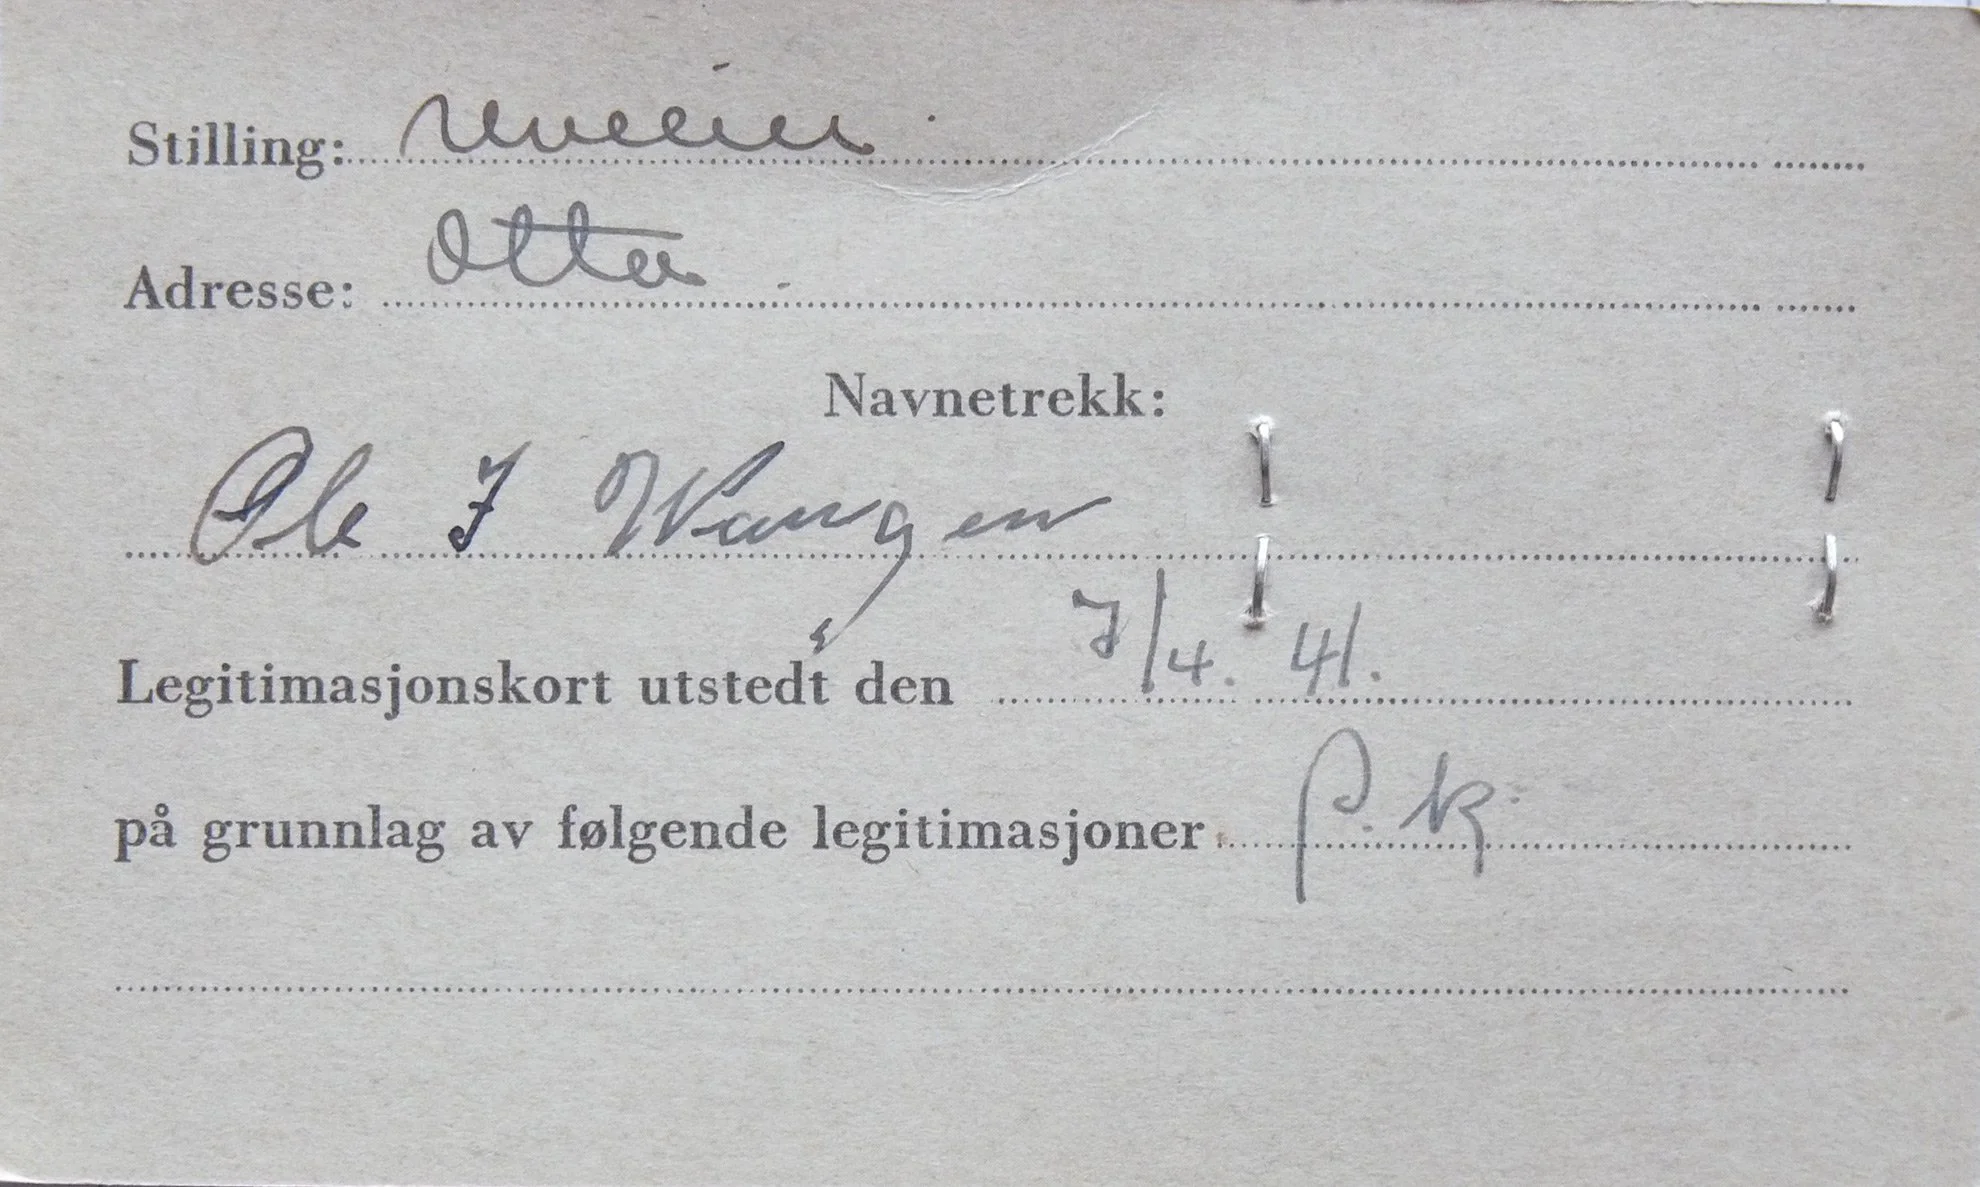 Stilling:
Adresse: Otta.
Navnetrekk:
Ole J Wangen
Legitimasjonskort utstedt den 7/4. 41.
på grunnlag av følgende legitimasjoner p. k.